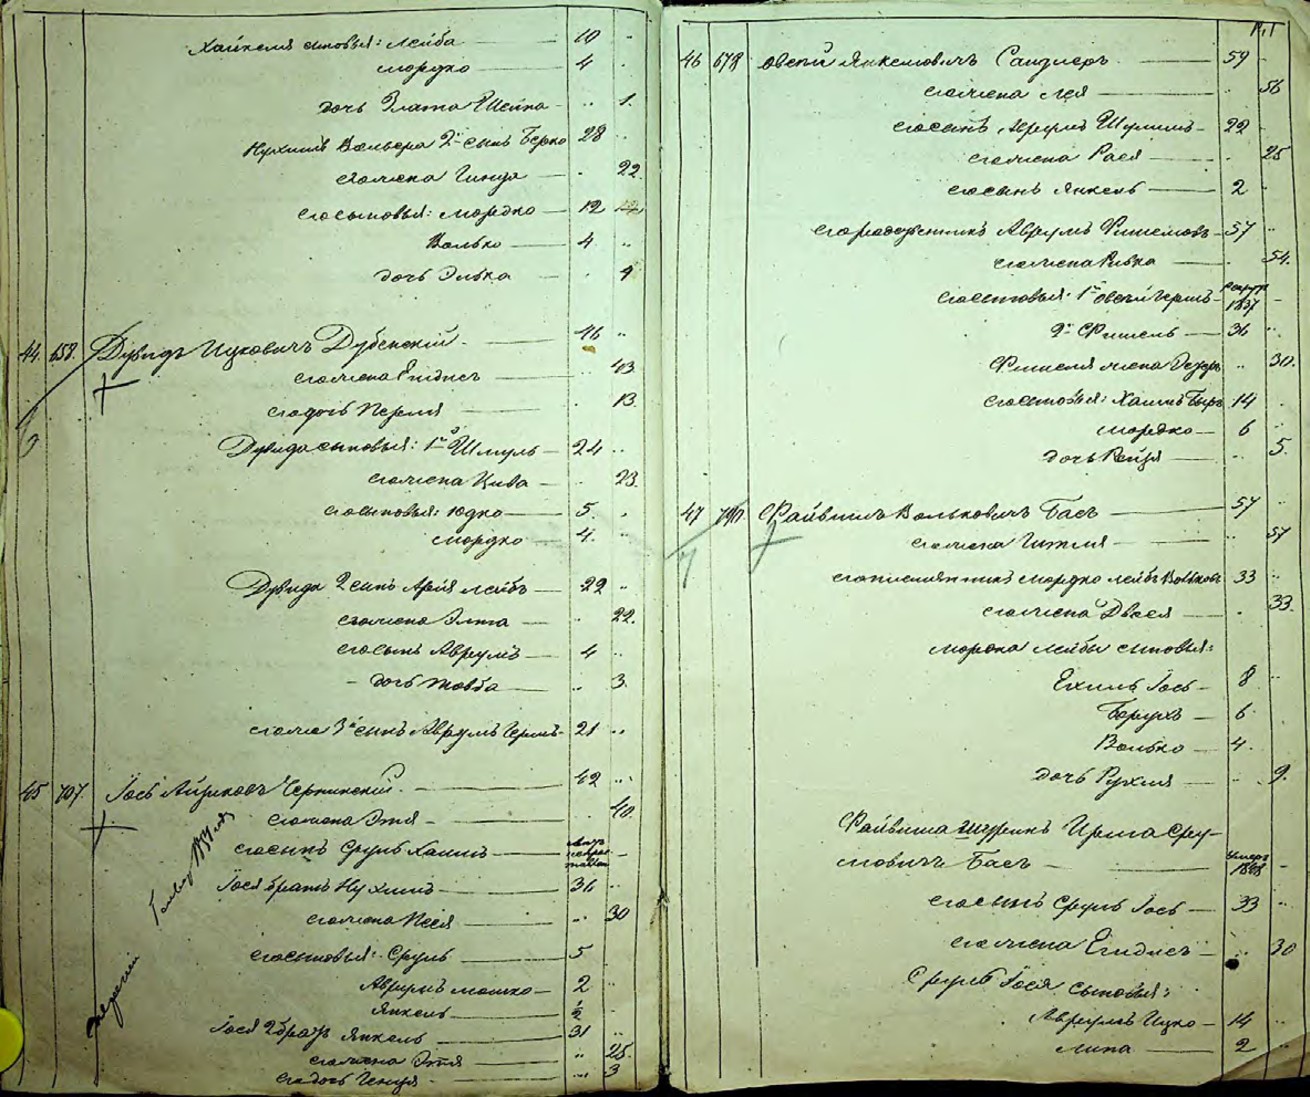 Хаикеля сыновья: Лейба — 10 ..
Мордко — 4 .
дочь Злата Шейна — .. 1.
Нухима Вольфа 2й сынъ Берко 28 ..
его жена Гинда — . 22.
его сыновья: Мордко — 12
Волько — 4 ..
дочь Элька — . 9
44. 658. Дувидъ Ицковичъ Дубенскій. — 46 ..
его жена Ендисъ — .. 43
его дочь Перля — . 13.
Дувида сыновья: 1й Шмуль — 24 ..
его жена Цива — .. 23.
его сыновья: Юдко — 5. .
Мордко — 4. ..
Дувида 2 сынъ Арія Лейбъ — 22 ..
его жена Элта — .. 22.
его сынъ Аврумъ — 4 ..
дочь Товба — .. 3.
его же 3й сынъ Аврумъ Гершъ — 21 ..
45 707. Іось Айзиковъ Чернинскій. — 42 ..
его жена Этя — . 40.
его сынъ Сруль Хаимъ —
Іося братъ Нухимъ — 31 ..
его жена Песя — .. 30
его сыновья: Сруль — 5
Аврумъ Мошко — 2 ..
Янкель — ½
Іося 2 братъ Янкель — 31 ..
его жена Этя — .. 25.
его дочь Генця — .. 3
46 678 Овсій Янкелевичъ Сандлеръ — 59 -
его жена Лея — . 56
его сынъ Аврумъ Шулимъ — 22 -
его жена Рася — . 25
его сынъ Янкель — 2 -
его родственникъ Аврумъ Фишелевъ — 57 ..
его жена Ривка — . 54.
его сыновья: 1й Овсій Гершъ — рекрут 1837 -
2й Фишель — 36 ..
Фишеля жена .. 30.
его сыновья: Хаимъ Беръ 14 .
Мордко — 6 ..
дочь Рейзя — .. 5.
47 Файвишъ Вольковичъ Басъ — 57 ..
его жена Гитля — .. 57
его племянникъ Мордко Лейбъ Вольковъ 33 ..
его жена Двося — . 33.
Мордка Лейбы сыновья:
Ехиль Іось — 8 ..
Борухъ — 6 .
Волько — 4. ..
дочь Рухля — .. 9.
Файвиша шуринъ Сру-
левичъ Басъ — умеръ 1848 -
его сынъ Сруль Іось — 33 ..
его жена Ендисъ — .. 30
Сруля Іося сыновья:
Аврумъ Ицко — 14 ..
Липа — 2 ..